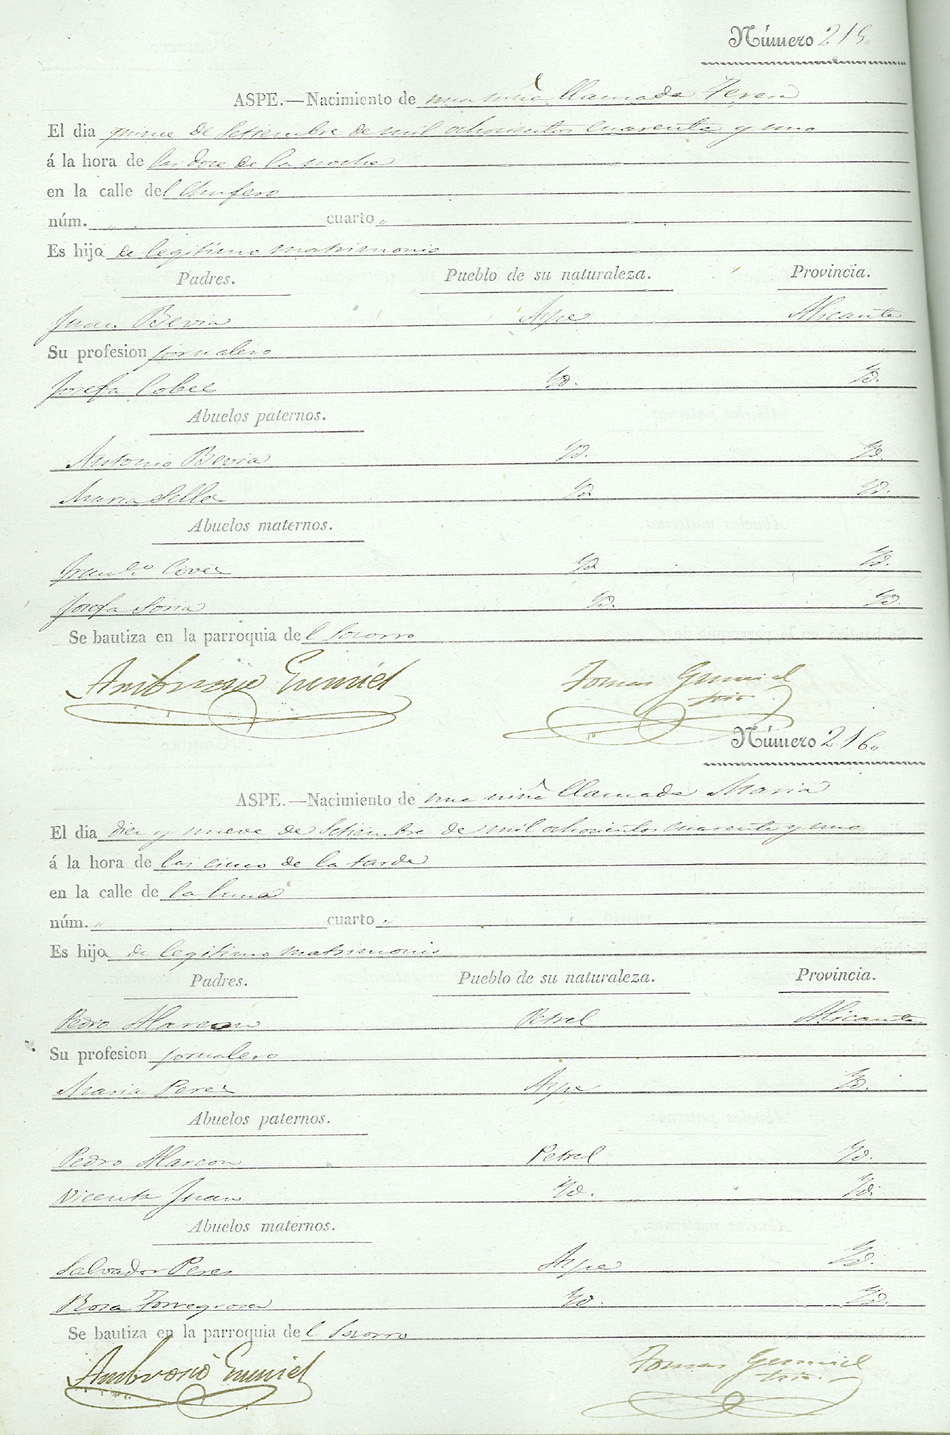 Número 215.
ASPE.—Nacimiento de una niña llamada Teresa
El dia quince de Setiembre de mil ochocientos cuarenta y uno
á la hora de las doce de la noche
en la calle del Chufero
núm. „ cuarto „
Es hijo de legitimo matrimonio
Padres. Pueblo de su naturaleza. Provincia.
Juan Bevia Aspe Alicante
Su profesion jornalero
Josefa Cobes Yd. Yd.
Abuelos paternos.
Antonio Bevia Yd. Yd.
Maria Sellec Yd. Yd.
Abuelos maternos.
Fran.co Coves Yd. Yd.
Josefa Soria Yd. Yd.
Se bautiza en la parroquia del Socorro
Ambrosio Tomas
Número 216.
ASPE.—Nacimiento de una niña llamada Maria
El dia diez y nueve de Setiembre de mil ochocientos cuarenta y uno
á la hora de las cinco de la tarde
en la calle de la luna
núm. „ cuarto „
Es hijo de legitimo matrimonio
Padres. Pueblo de su naturaleza. Provincia.
Pedro Marcon Petrel Alicante
Su profesion jornalero
Maria Perez Aspe Yd.
Abuelos paternos.
Pedro Marcon Petrel Yd.
Vicenta Juan Yd. Yd.
Abuelos maternos.
Salvador Peres Aspe Yd.
Rosa Torregrosa Yd. Yd.
Se bautiza en la parroquia del Socorro
Ambrosio Tomas